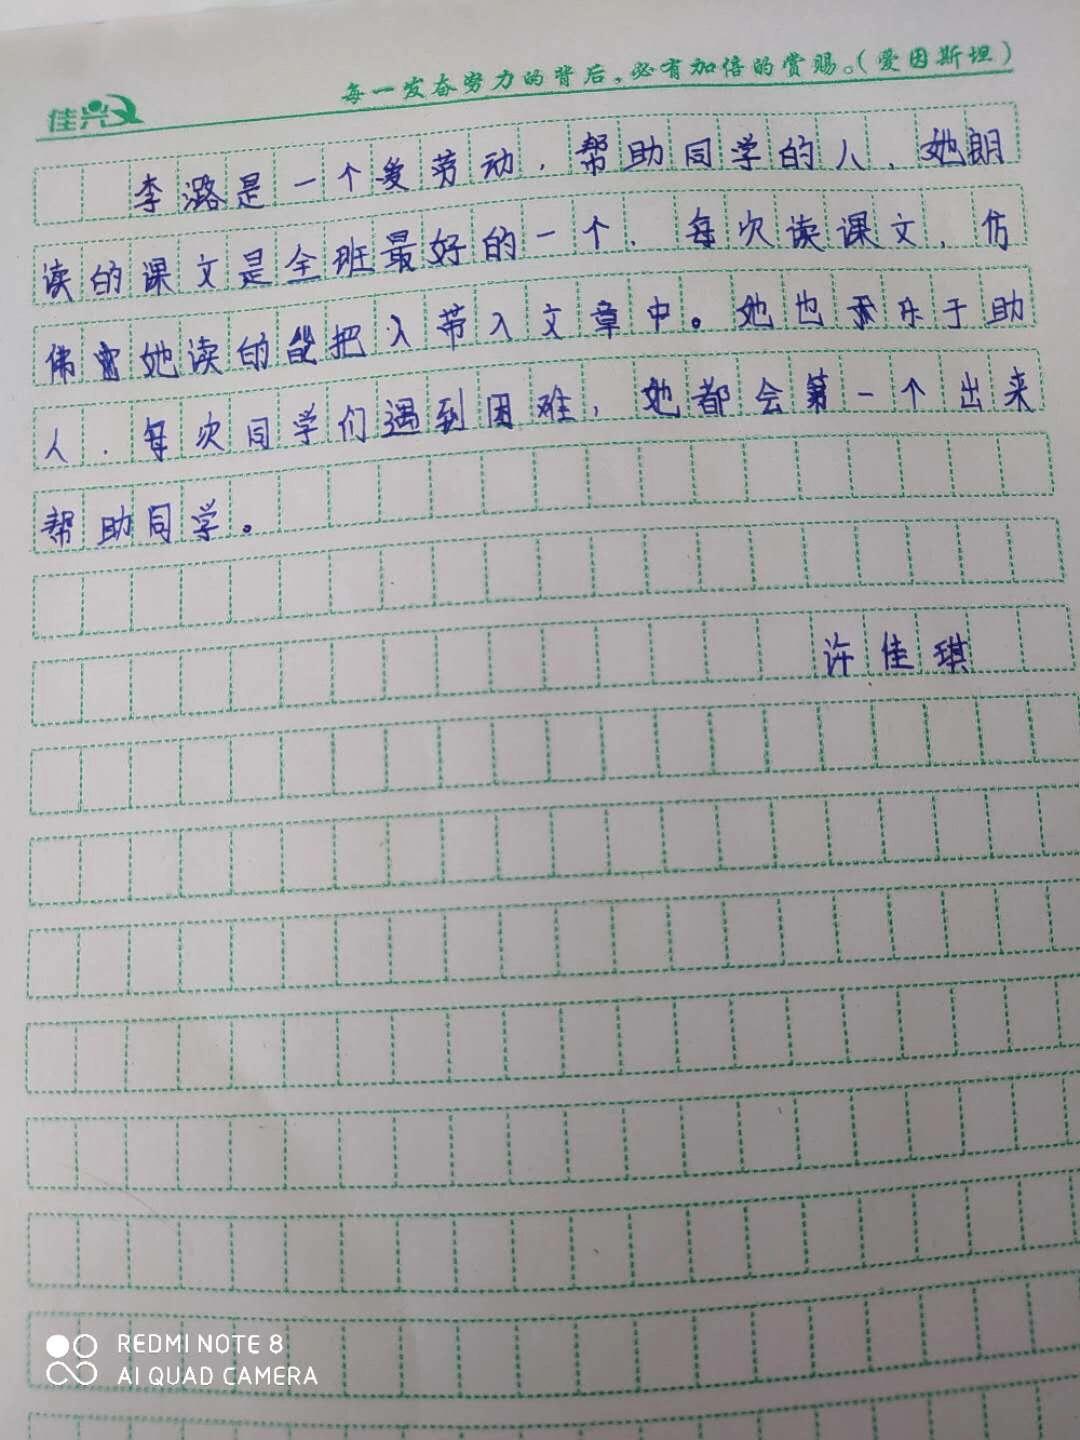 佳兴
每一发奋努力的背后,必有加倍的赏赐。(爱因斯坦)
李潞是一个爱劳动,帮助同学的人,她朗
读的课文是全班最好的一个.每次读课文,仿
佛她读的能把人带入文章中。她也乐于助
人.每次同学们遇到困难,她都会第一个出来
帮助同学。
许佳琪
REDMI NOTE 8
AI QUAD CAMERA